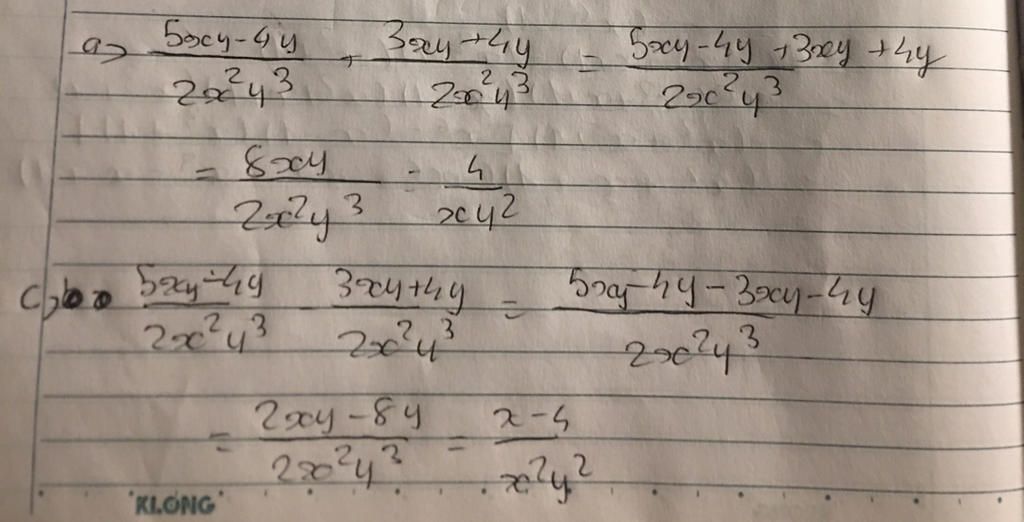 a) (5xy-4y)/(2x²y³) + (3xy+4y)/(2x²y³) = (5xy-4y+3xy+4y)/(2x²y³)
= 8xy/(2x²y³) = 4/(xy²)
c) (5xy-4y)/(2x²y³) - (3xy+4y)/(2x²y³) = (5xy-4y-3xy-4y)/(2x²y³)
= (2xy-8y)/(2x²y³) = (x-4)/(x²y²)
KLONG